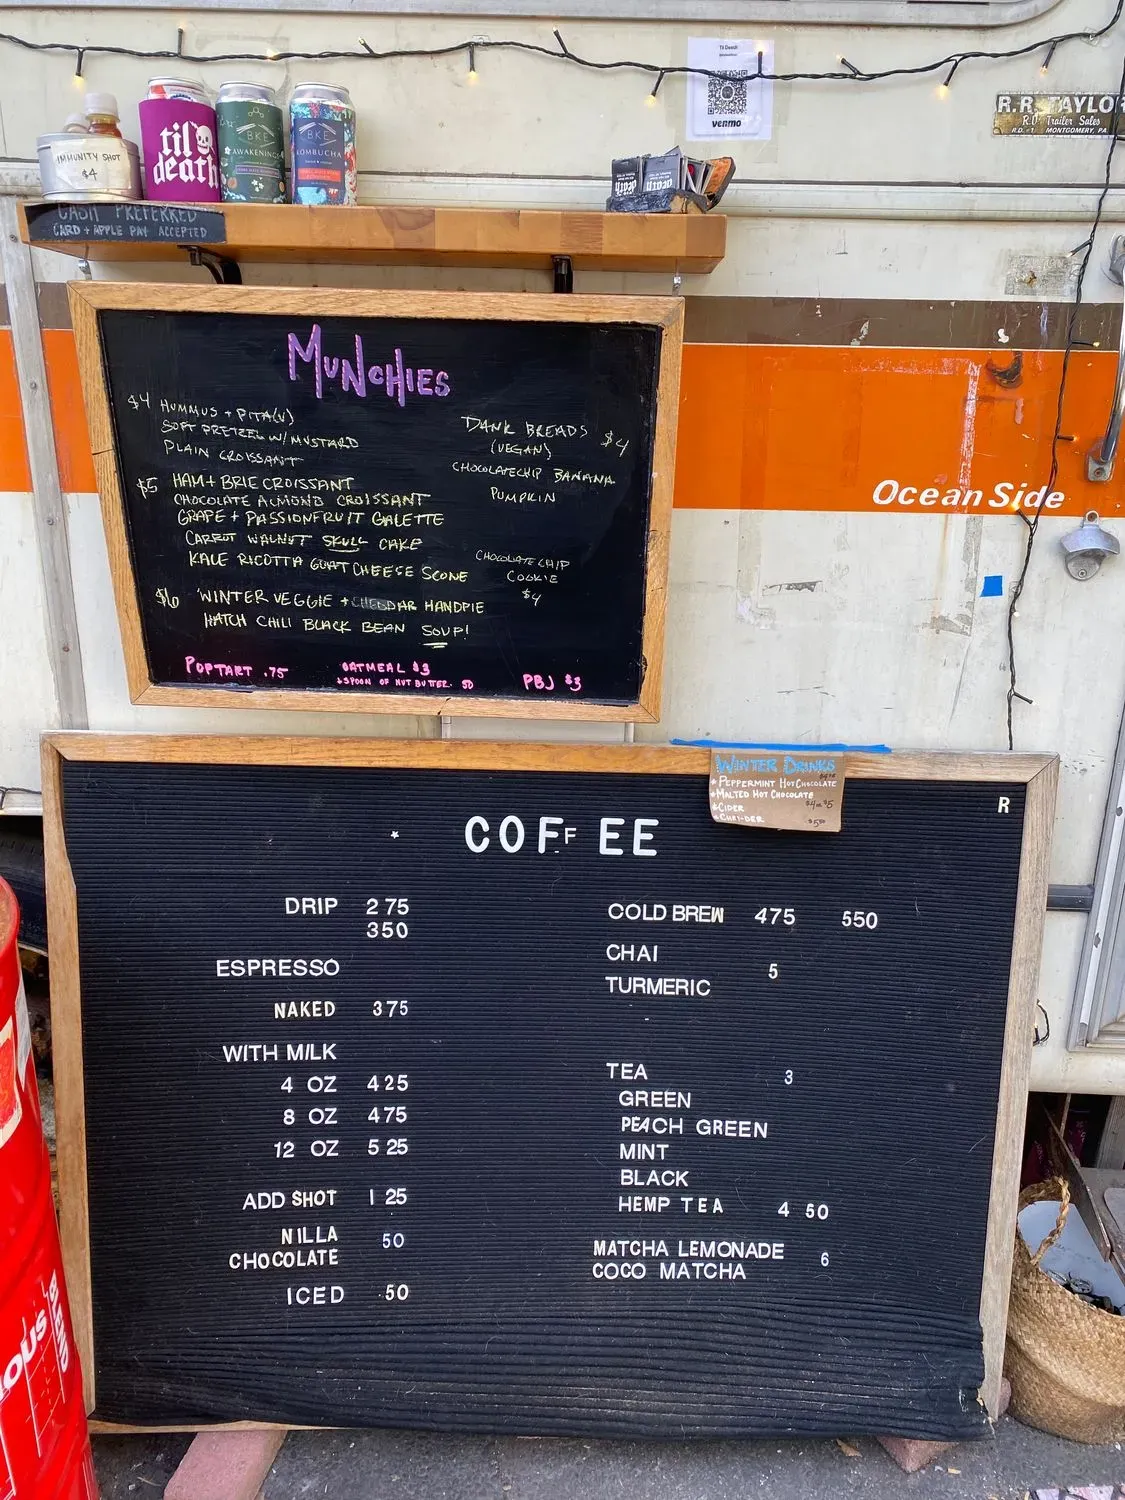 Til Death
venmo
R.R. TAYLO
R.D. Trailer Sales
R.D. #1 MONTGOMERY, PA
IMMUNITY SHOT
$4
til'
death
BKE
AWAKENING
BKE
KOMBUCHA
death
death
CASH PREFERRED
CARD + APPLE PAY ACCEPTED
MUNCHIES
$4 HUMMUS + PITA (V)
SOFT PRETZEL W/ MUSTARD
PLAIN CROISSANT
$5 HAM + BRIE CROISSANT
CHOCOLATE ALMOND CROISSANT
GRAPE + PASSIONFRUIT GALETTE
CARROT WALNUT SKULL CAKE
KALE RICOTTA GOAT CHEESE SCONE
$6 WINTER VEGGIE + CHEDDAR HANDPIE
HATCH CHILI BLACK BEAN SOUP!
DANK BREADS $4
(VEGAN)
CHOCOLATE CHIP BANANA
PUMPKIN
CHOCOLATE CHIP
COOKIE
$4
POPTART .75
OATMEAL $3
+ SPOON OF NUT BUTTER .50
PBJ $3
Ocean Side
WINTER DRINKS
PEPPERMINT HOT CHOCOLATE
MALTED HOT CHOCOLATE
CIDER $4 or $5
CHAI-DER $5.50
R
COFFEE
DRIP 2 75
350
ESPRESSO
NAKED 3 75
WITH MILK
4 OZ 4 25
8 OZ 4 75
12 OZ 5 25
ADD SHOT 1 25
NILLA
CHOCOLATE 50
ICED .50
COLD BREW 475 550
CHAI
TURMERIC 5
TEA 3
GREEN
PEACH GREEN
MINT
BLACK
HEMP TEA 4 50
MATCHA LEMONADE 6
COCO MATCHA
IOUS
BLEND